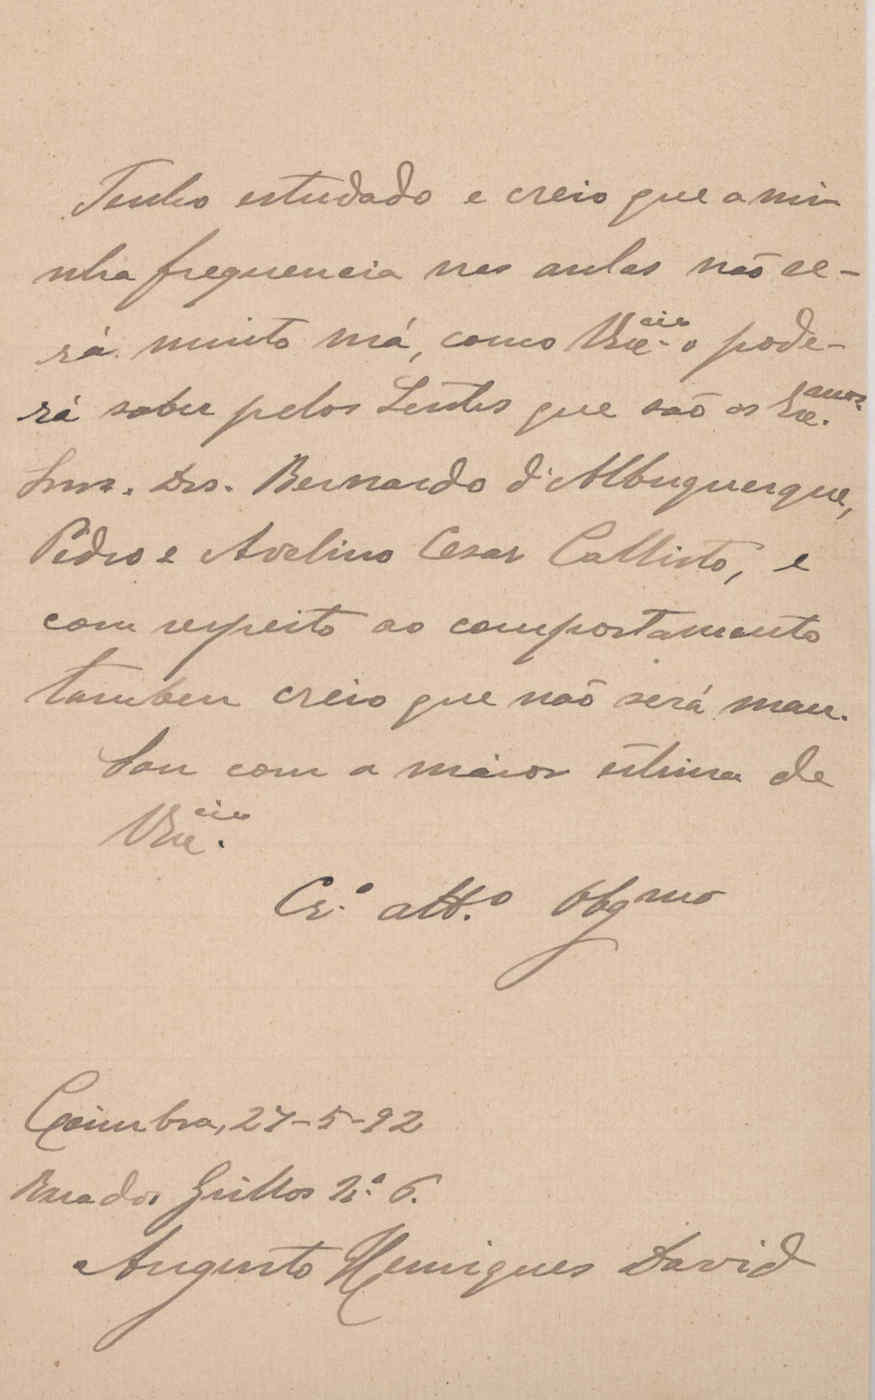 Tenho estudado e creio que a mi-
nha frequencia nas aulas não se-
rá muito má, como VExc.cia o pode-
rá saber pelos Lentes que são os Exc.mos
Snrs. Drs. Bernardo d'Albuquerque,
Pedro e Avelino Cesar Callisto, e
com respeito ao comportamento
tambem creio que não será mau.
Sou com a maior estima de
VExc.cia
Cr.º att.º Obgmo
Coimbra, 27-5-92
Rua dos Grillos N.º 6.
Augusto Henriques David